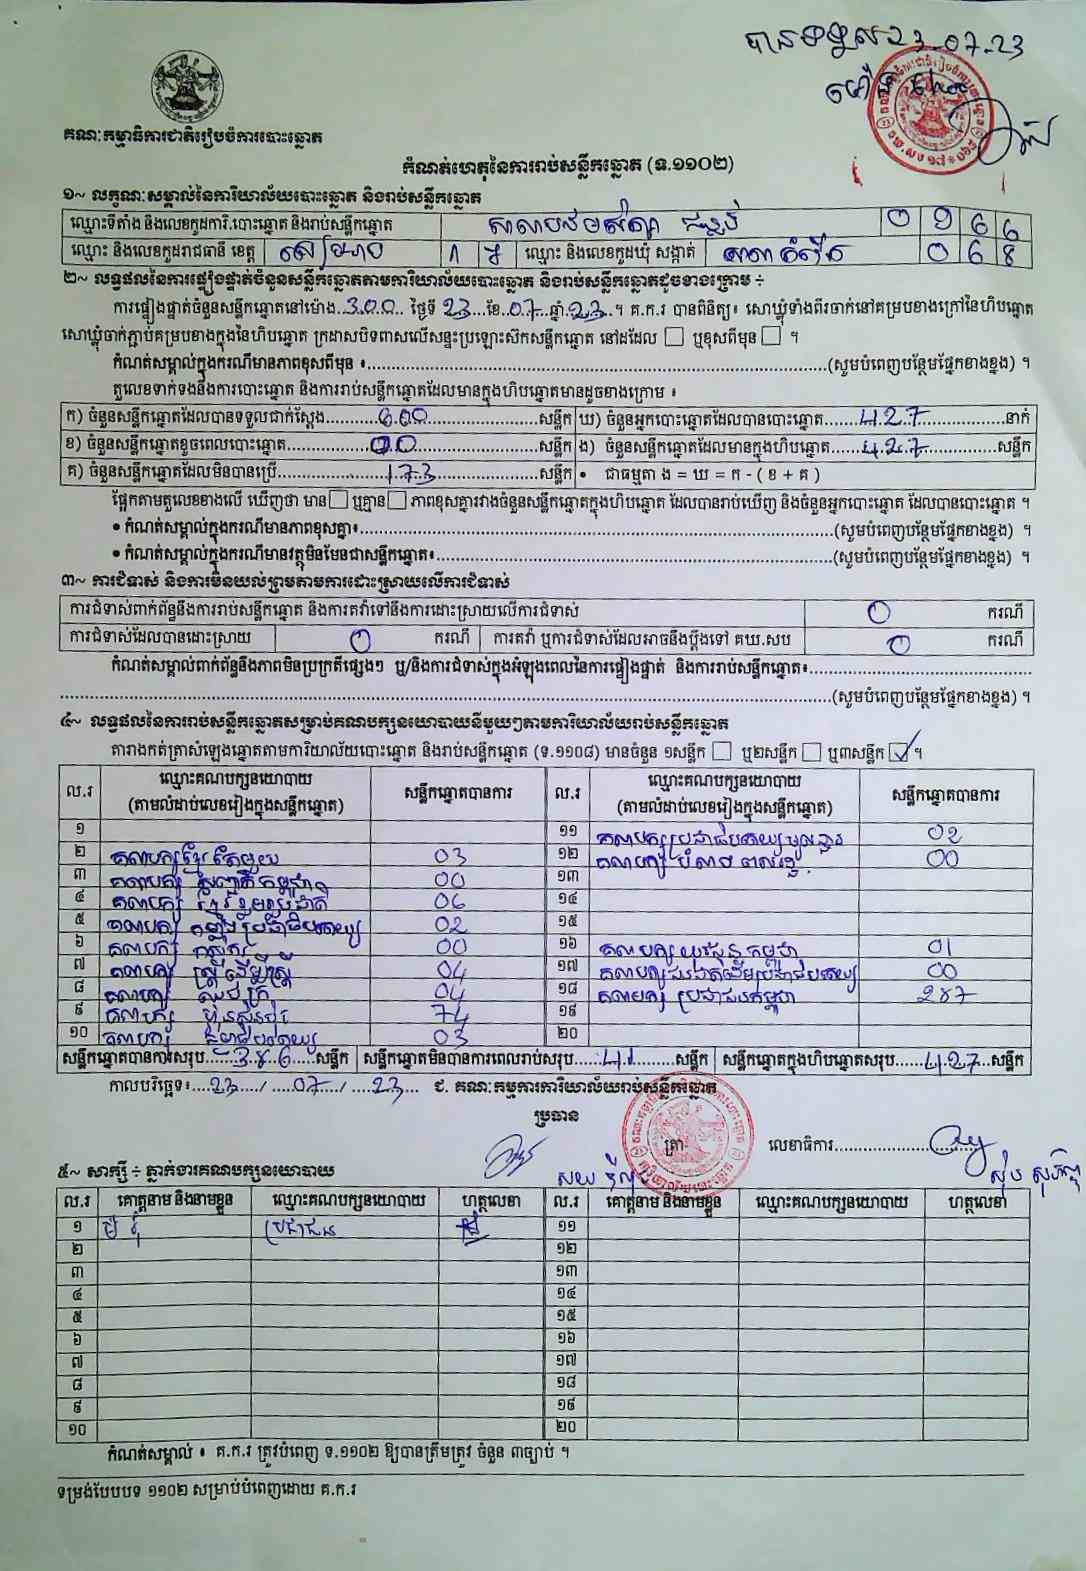 បានទទួល 23-07-23
គណៈកម្មាធិការជាតិរៀបចំការបោះឆ្នោត
កំណត់ហេតុនៃការរាប់សន្លឹកឆ្នោត (ទ.១១០២)
១~ លក្ខណៈសម្គាល់នៃការិយាល័យបោះឆ្នោត និងរាប់សន្លឹកឆ្នោត
ឈ្មោះទីតាំង និងលេខកូដការិ.បោះឆ្នោត និងរាប់សន្លឹកឆ្នោត សាលាបឋមសិក្សា
ឈ្មោះ និងលេខកូដរាជធានី ខេត្ត សៀមរាប ១៧ ឈ្មោះ និងលេខកូដឃុំ សង្កាត់ សាលាកំរើក
២~ លទ្ធផលនៃការផ្ទៀងផ្ទាត់ចំនួនសន្លឹកឆ្នោតតាមការិយាល័យបោះឆ្នោត និងរាប់សន្លឹកឆ្នោតដូចខាងក្រោម ÷
ការផ្ទៀងផ្ទាត់ចំនួនសន្លឹកឆ្នោតនៅម៉ោង 3:00 ថ្ងៃទី 23 ខែ 07 ឆ្នាំ 23 ។ គ.ក.រ បានពិនិត្យ៖ សោឃ្លុំទាំងពីរចាក់នៅគម្របខាងក្រៅនៃហិបឆ្នោត
សោឃ្លុំចាក់ភ្ជាប់គម្របខាងក្នុងនៃហិបឆ្នោត ក្រដាសបិទពាសលើសន្ទះប្រឡោះស៊កសន្លឹកឆ្នោត នៅដដែល ☐ ឬខុសពីមុន ☐ ។
កំណត់សម្គាល់ក្នុងករណីមានភាពខុសពីមុន ៖ (សូមបំពេញបន្ថែមផ្នែកខាងខ្នង) ។
តួលេខទាក់ទងនឹងការបោះឆ្នោត និងការរាប់សន្លឹកឆ្នោតដែលមានក្នុងហិបឆ្នោតមានដូចខាងក្រោម ៖
ក) ចំនួនសន្លឹកឆ្នោតដែលបានទទួលជាក់ស្ដែង 600 សន្លឹក ឃ) ចំនួនអ្នកបោះឆ្នោតដែលបានបោះឆ្នោត 427 នាក់
ខ) ចំនួនសន្លឹកឆ្នោតខូចពេលបោះឆ្នោត 00 សន្លឹក ង) ចំនួនសន្លឹកឆ្នោតដែលមានក្នុងហិបឆ្នោត 427 សន្លឹក
គ) ចំនួនសន្លឹកឆ្នោតដែលមិនបានប្រើ 173 សន្លឹក • ជាធម្មតា ង = ឃ = ក - ( ខ + គ )
ផ្អែកតាមតួលេខខាងលើ ឃើញថា មាន ☐ ឬគ្មាន ☐ ភាពខុសគ្នារវាងចំនួនសន្លឹកឆ្នោតក្នុងហិបឆ្នោត ដែលបានរាប់ឃើញ និងចំនួនអ្នកបោះឆ្នោត ដែលបានបោះឆ្នោត ។
• កំណត់សម្គាល់ក្នុងករណីមានភាពខុសគ្នា៖ (សូមបំពេញបន្ថែមផ្នែកខាងខ្នង) ។
• កំណត់សម្គាល់ក្នុងករណីមានវត្ថុមិនមែនជាសន្លឹកឆ្នោត៖ (សូមបំពេញបន្ថែមផ្នែកខាងខ្នង) ។
៣~ ការជំទាស់ និងការមិនយល់ព្រមតាមការដោះស្រាយលើការជំទាស់
ការជំទាស់ពាក់ព័ន្ធនឹងការរាប់សន្លឹកឆ្នោត និងការតវ៉ាទៅនឹងការដោះស្រាយលើការជំទាស់ 0 ករណី
ការជំទាស់ដែលបានដោះស្រាយ 0 ករណី ការតវ៉ា ឬការជំទាស់ដែលអាចនឹងប្ដឹងទៅ គឃ.សប 0 ករណី
កំណត់សម្គាល់ពាក់ព័ន្ធនឹងភាពមិនប្រក្រតីផ្សេងៗ ឬ/និងការជំទាស់ក្នុងអំឡុងពេលនៃការផ្ទៀងផ្ទាត់ និងការរាប់សន្លឹកឆ្នោត៖
(សូមបំពេញបន្ថែមផ្នែកខាងខ្នង) ។
៤~ លទ្ធផលនៃការរាប់សន្លឹកឆ្នោតសម្រាប់គណបក្សនយោបាយនីមួយៗតាមការិយាល័យរាប់សន្លឹកឆ្នោត
តារាងកត់ត្រាសំឡេងឆ្នោតតាមការិយាល័យបោះឆ្នោត និងរាប់សន្លឹកឆ្នោត (ទ.១១០៨) មានចំនួន ១សន្លឹក ☐ ឬ២សន្លឹក ☐ ឬ៣សន្លឹក ☑ ។
ល.រ ឈ្មោះគណបក្សនយោបាយ (តាមលំដាប់លេខរៀងក្នុងសន្លឹកឆ្នោត) សន្លឹកឆ្នោតបានការ ល.រ ឈ្មោះគណបក្សនយោបាយ (តាមលំដាប់លេខរៀងក្នុងសន្លឹកឆ្នោត) សន្លឹកឆ្នោតបានការ
១ ១១ គណបក្សប្រជាធិបតេយ្យមូលដ្ឋាន 02
២ គណបក្សខ្មែរតែមួយ 03 ១២ គណបក្ស 00
៣ គណបក្ស កម្ពុជា 00 ១៣
៤ គណបក្ស ខ្មែររួបរួមជាតិ 06 ១៤
៥ គណបក្ស ប្រជាធិបតេយ្យ 02 ១៥
៦ គណបក្ស កសិករ 00 ១៦ គណបក្ស យុវជន កម្ពុជា 01
៧ គណបក្ស ស្ត្រីដើម្បីស្ត្រី 04 ១៧ គណបក្ស ប្រជាធិបតេយ្យ 00
៨ គណបក្ស 04 ១៨ គណបក្ស ប្រជាជនកម្ពុជា 287
៩ គណបក្ស ហ៊្វុនស៊ិនប៉ិច 74 ១៩
១០ គណបក្ស ធម្មាធិបតេយ្យ 03 ២០
សន្លឹកឆ្នោតបានការសរុប 386 សន្លឹក សន្លឹកឆ្នោតមិនបានការពេលរាប់សរុប 41 សន្លឹក សន្លឹកឆ្នោតក្នុងហិបឆ្នោតសរុប 427 សន្លឹក
កាលបរិច្ឆេទ៖ 23 / 07 / 23 ជ. គណៈកម្មការការិយាល័យរាប់សន្លឹកឆ្នោត
ប្រធាន
ត្រា លេខាធិការ
៥~ សាក្សី ÷ ភ្នាក់ងារគណបក្សនយោបាយ
ល.រ គោត្តនាម និងនាមខ្លួន ឈ្មោះគណបក្សនយោបាយ ហត្ថលេខា ល.រ គោត្តនាម និងនាមខ្លួន ឈ្មោះគណបក្សនយោបាយ ហត្ថលេខា
១ ប្រជាជន ១១
២ ១២
៣ ១៣
៤ ១៤
៥ ១៥
៦ ១៦
៧ ១៧
៨ ១៨
៩ ១៩
១០ ២០
កំណត់សម្គាល់ ៖ គ.ក.រ ត្រូវបំពេញ ទ.១១០២ ឱ្យបានត្រឹមត្រូវ ចំនួន ៣ច្បាប់ ។
ទម្រង់បែបបទ ១១០២ សម្រាប់បំពេញដោយ គ.ក.រ